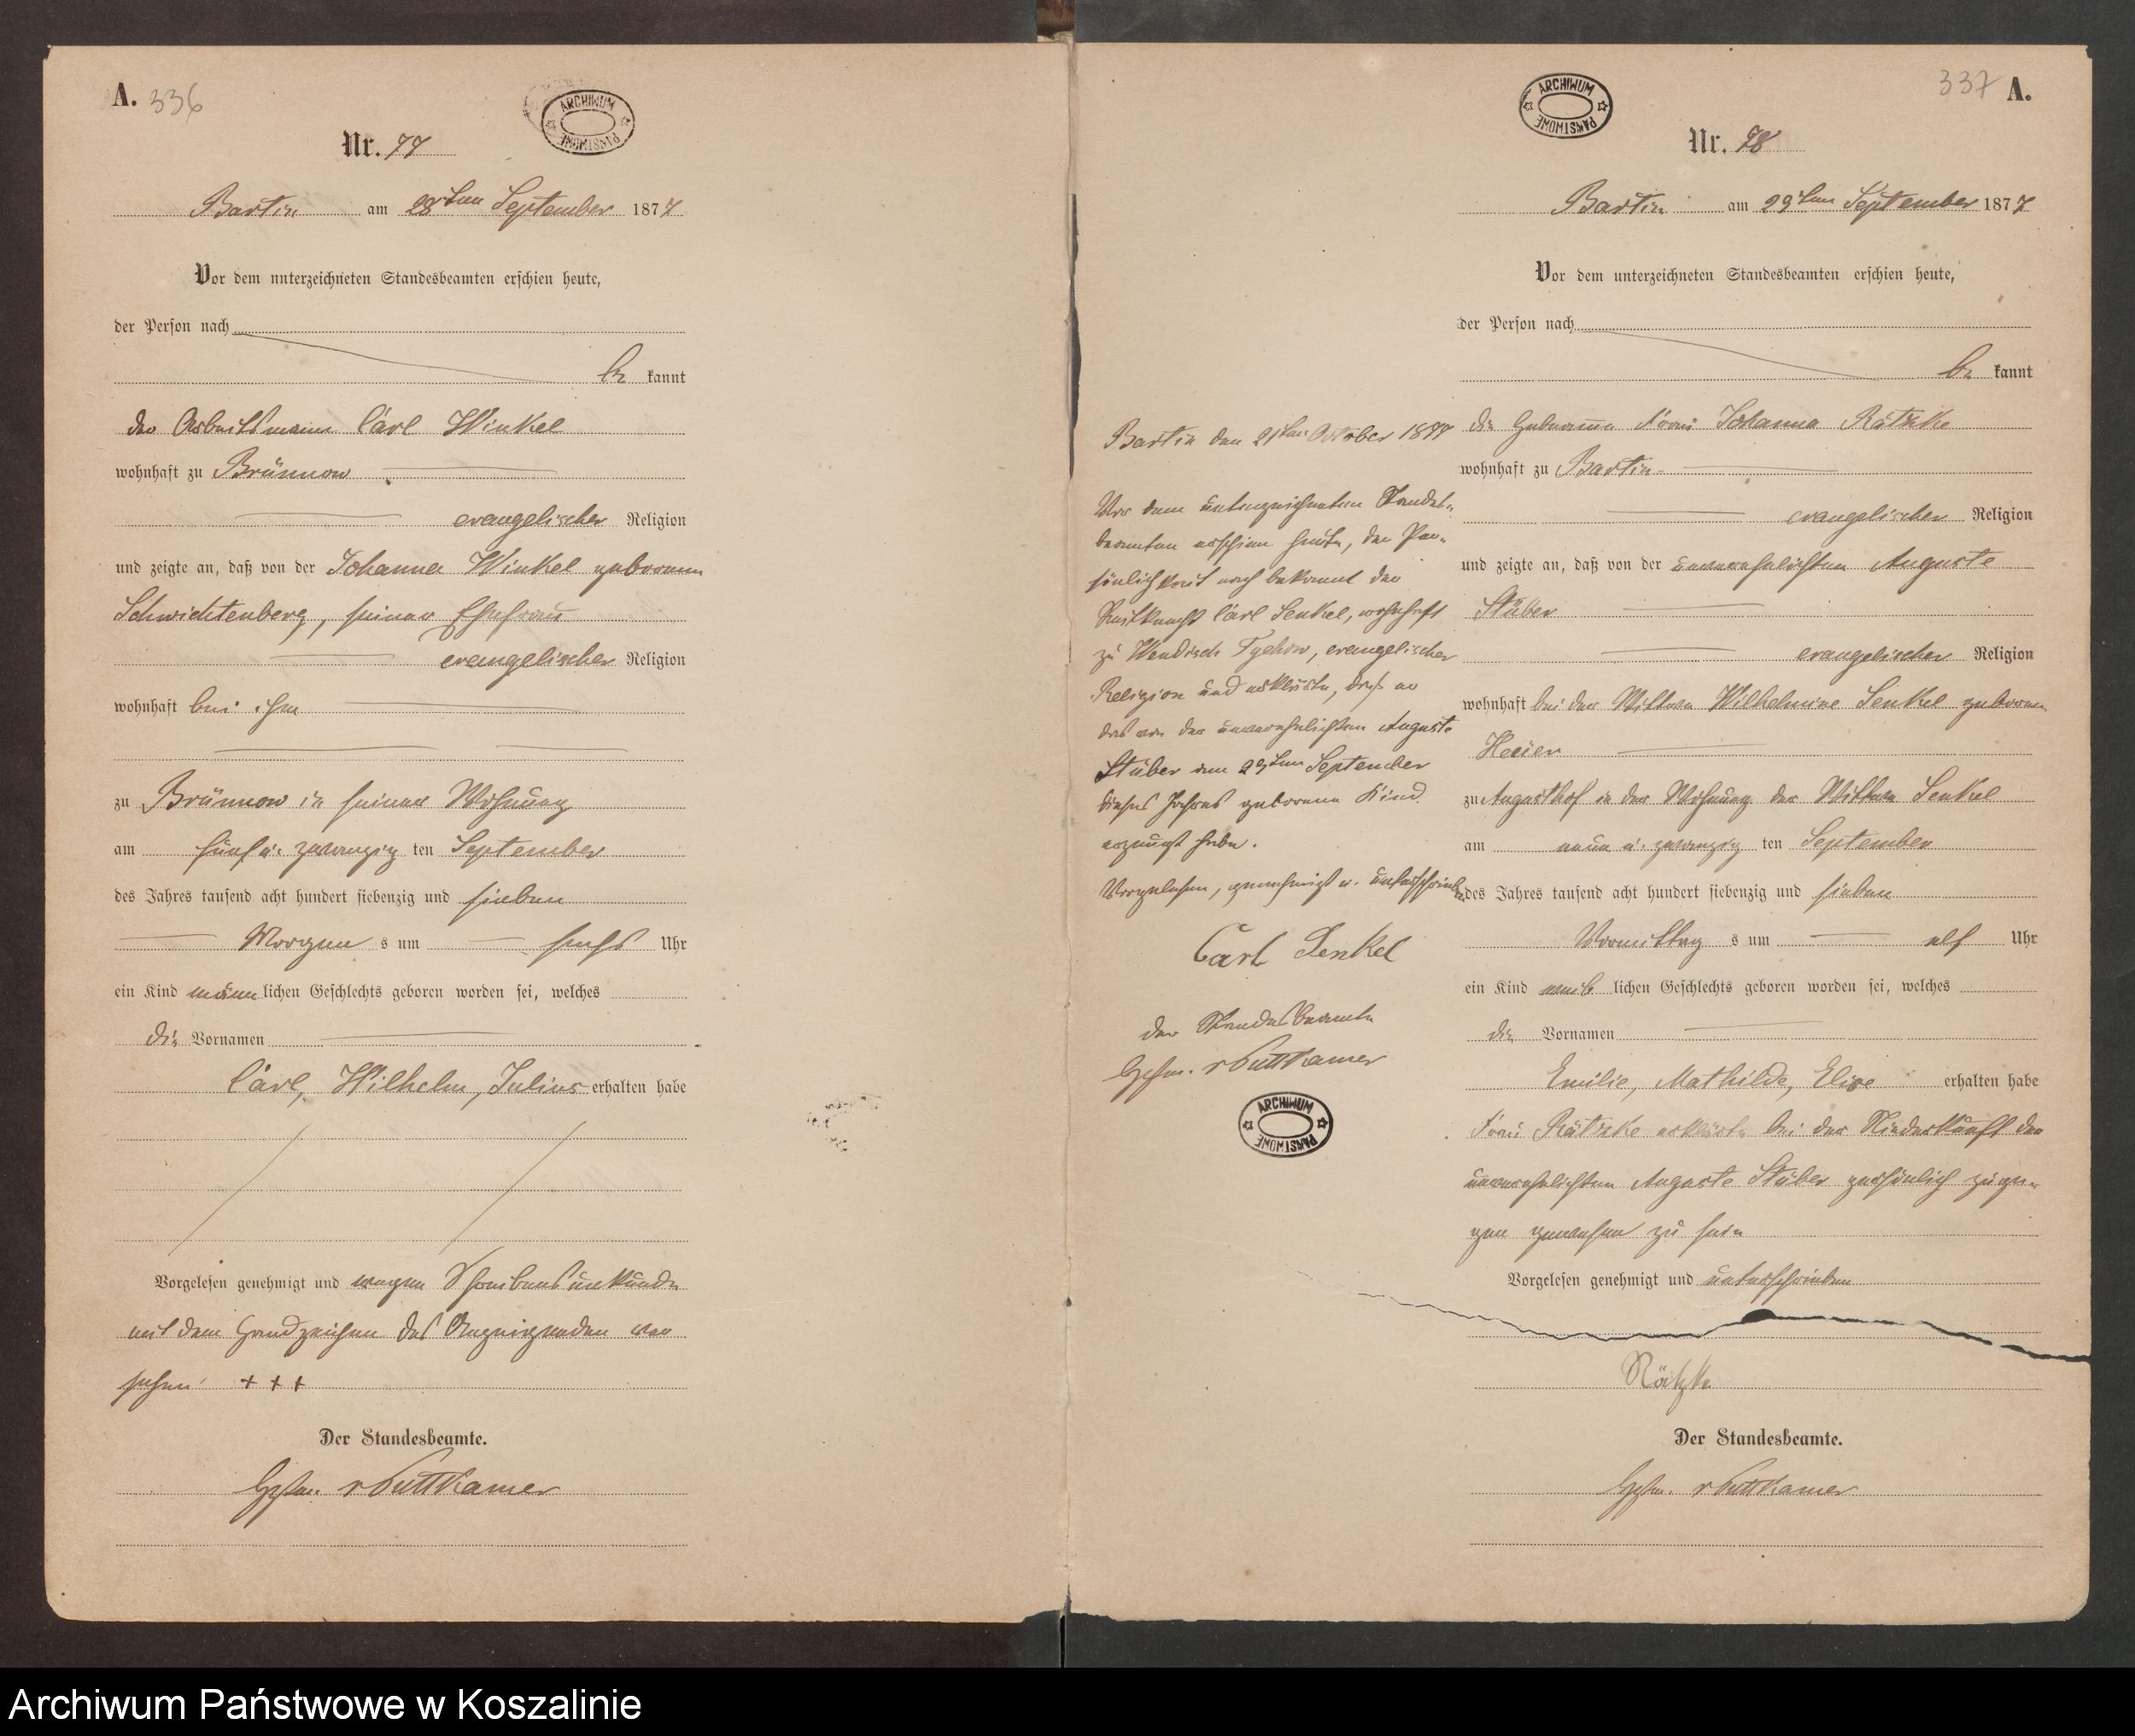 A. 336
ARCHIWUM PAŃSTWOWE
Nr. 77
Bartin am 28ten September 1877
Vor dem unterzeichneten Standesbeamten erschien heute,
der Person nach
be kannt
der Arbeitsmann Carl Winkel
wohnhaft zu Brünnow
evangelischer Religion
und zeigte an, daß von der Johanna Winkel geborenen
Schwichtenberg, seiner Ehefrau
evangelischer Religion
wohnhaft bei ihm
zu Brünnow in seiner Wohnung
am fünf u. zwanzig ten September
des Jahres tausend acht hundert siebenzig und sieben
Morgen s um sechs Uhr
ein Kind männ lichen Geschlechts geboren worden sei, welches
die Vornamen
Carl, Wilhelm, Julius erhalten habe
Vorgelesen genehmigt und wegen Schreibensunkunde
mit dem Handzeichen des Anzeigenden ver
sehen +++
Der Standesbeamte.
v Puttkamer
337 A.
ARCHIWUM PAŃSTWOWE
Nr. 78
Bartin am 29ten September 1877
Vor dem unterzeichneten Standesbeamten erschien heute,
der Person nach
be kannt
die Hebamme Frau Johanna Rätzke
wohnhaft zu Bartin
evangelischer Religion
und zeigte an, daß von der unverehelichten Auguste
Stüber
evangelischer Religion
wohnhaft bei der Wittwe Wilhelmine Senkel geborenen
Heuer
zu Augusthof in der Wohnung der Wittwe Senkel
am neun u. zwanzig ten September
des Jahres tausend acht hundert siebenzig und sieben
Vormittag s um elf Uhr
ein Kind weib lichen Geschlechts geboren worden sei, welches
die Vornamen
Emilie, Mathilde, Elise erhalten habe
Frau Rätzke erklärte bei der Niederkunft der
unverehelichten Auguste Stüber persönlich zuge-
gen gewesen zu sein
Vorgelesen genehmigt und unterschrieben
Rätzke
Der Standesbeamte.
v Puttkamer
Bartin den 21ten October 1877
Vor dem unterzeichneten Standes-
beamten erschien heute, der Per-
sönlichkeit nach bekannt der
Reitknecht Carl Senkel, wohnhaft
zu Wendisch Tychow, evangelischer
Religion und erklärte, daß er
das von der unverehelichten Auguste
Stüber am 29ten September
dieses Jahres geborene Kind
erzeugt habe.
Vorgelesen, genehmigt u. unterschrieben
Carl Senkel
der Standesbeamte
v Puttkamer
ARCHIWUM PAŃSTWOWE
Archiwum Państwowe w Koszalinie